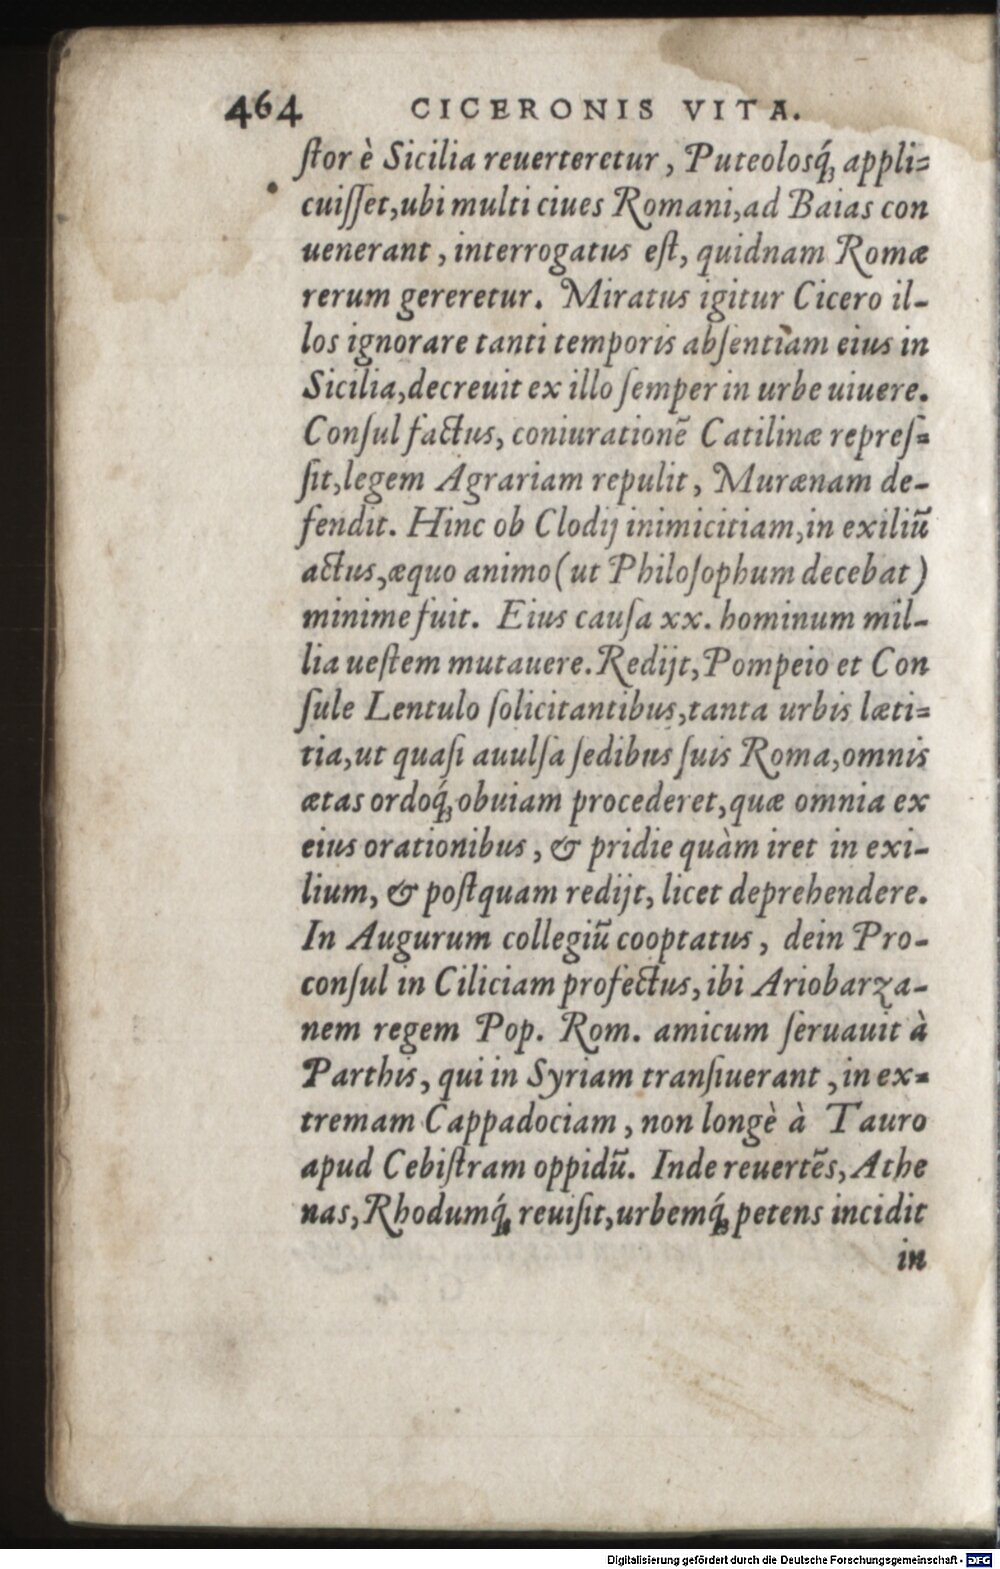 464 CICERONIS VITA.
ſtor è Sicilia reuerteretur, Puteolosq́; appli=
cuiſſet, ubi multi ciues Romani, ad Baias con
uenerant, interrogatus eſt, quidnam Romæ
rerum gereretur. Miratus igitur Cicero il-
los ignorare tanti temporis abſentiam eius in
Sicilia, decreuit ex illo ſemper in urbe uiuere.
Conſul factus, coniurationē Catilinæ repreſ=
ſit, legem Agrariam repulit, Murænam de-
fendit. Hinc ob Clodij inimicitiam, in exiliū
actus, æquo animo (ut Philoſophum decebat)
minime fuit. Eius cauſa xx. hominum mil-
lia ueſtem mutauere. Redijt, Pompeio et Con
ſule Lentulo ſolicitantibus, tanta urbis læti=
tia, ut quaſi auulſa ſedibus ſuis Roma, omnis
ætas ordoq́; obuiam procederet, quæ omnia ex
eius orationibus, & pridie quàm iret in exi-
lium, & poſtquam redijt, licet deprehendere.
In Augurum collegiū cooptatus, dein Pro-
conſul in Ciliciam profectus, ibi Ariobarza-
nem regem Pop. Rom. amicum ſeruauit à
Parthis, qui in Syriam tranſiuerant, in ex=
tremam Cappadociam, non longè à Tauro
apud Cebiſtram oppidū. Inde reuertēs, Athe
nas, Rhodumq́; reuiſit, urbemq́; petens incidit
in
Digitalisierung gefördert durch die Deutsche Forschungsgemeinschaft - DFG